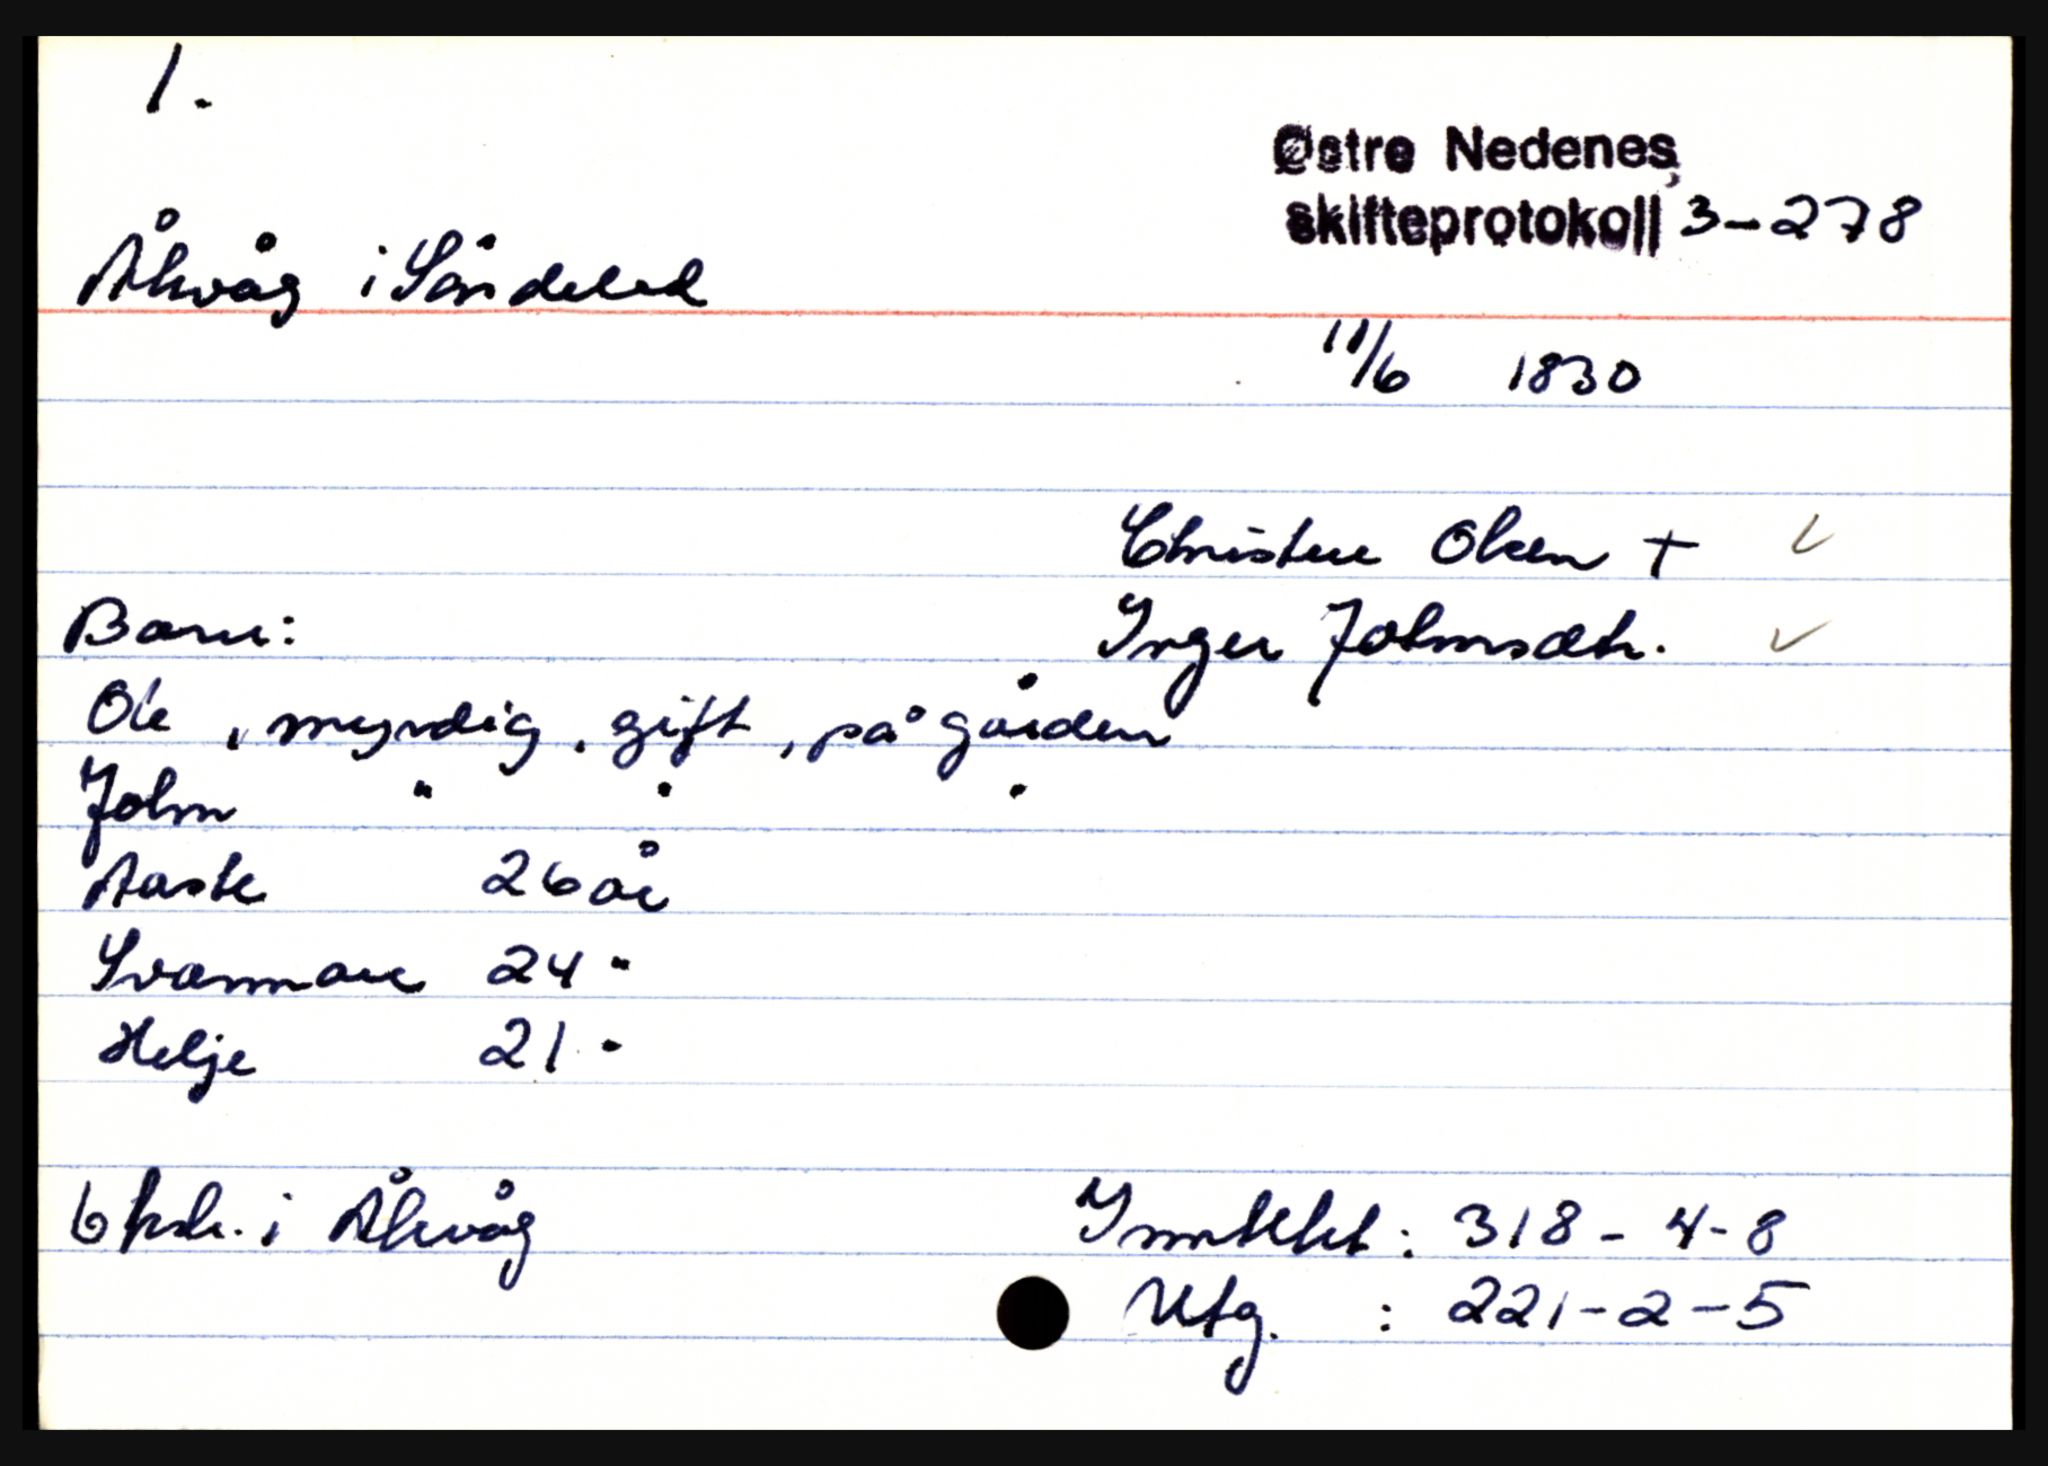 1.
Østre Nedenes,
skifteprotokoll 3-278
Åkvåg i Søndeled
11/6 1830
Christen Olsen + ✓
Barn: Inger Johnsdtr. ✓
Ole, myndig, gift, på gården
John " " "
Aaste 26 år
Svanmoe 24 "
Helje 21 "
6 hd. i Åkvåg Inntekt: 318-4-8
Utg. : 221-2-5